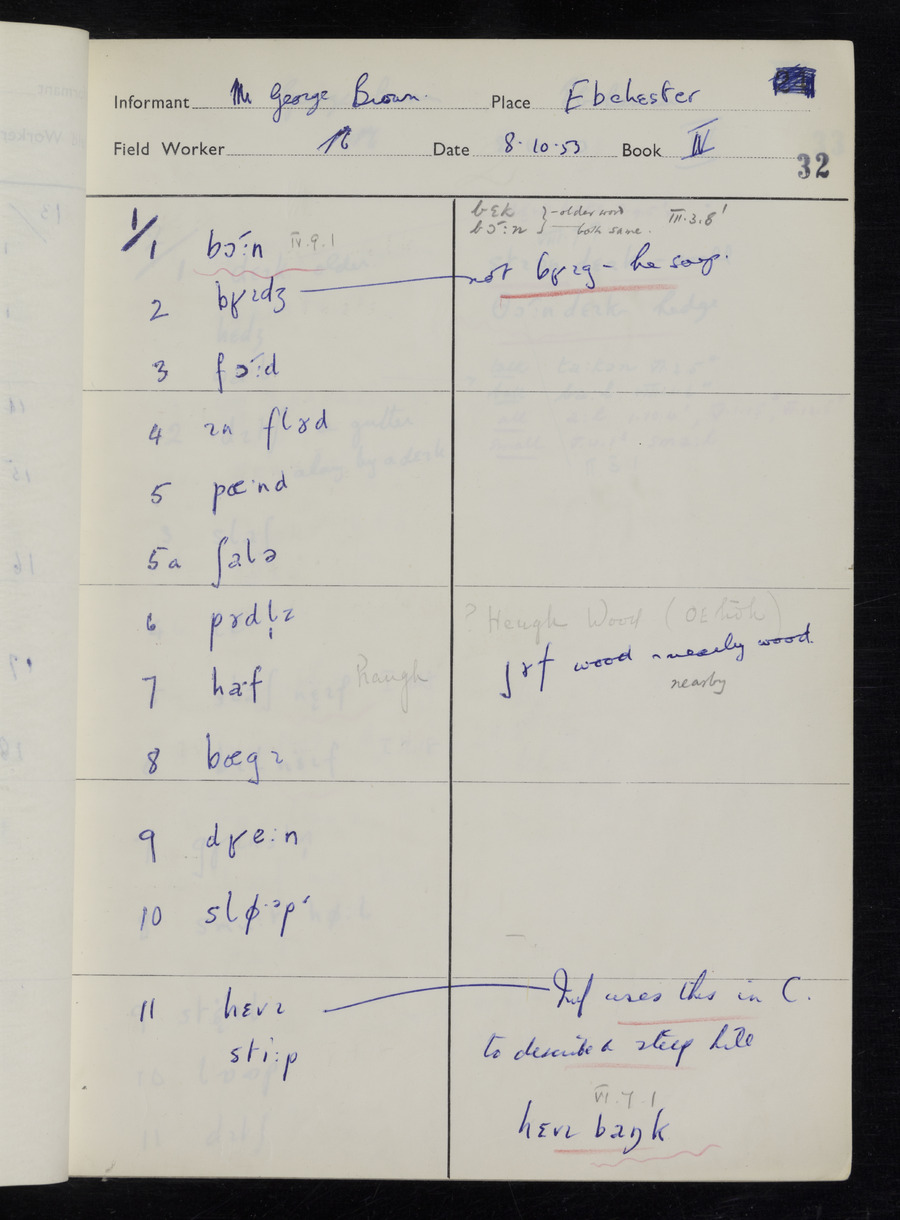 Informant Mr George Brown. Place Ebchester
Field Worker Date 8.10.53 Book IV
32
1/1 bɔ̄:n IV.9.1
bɛk } -older word III.3.8'
bɔ̄:n } both same.
2 bʁɪdʒ not bʁɪg - he says.
3 fɔ̄:d
4 ɪn flɤd
5 pæ·nd
5a ʃalə
6 pɤdl̩ɪ
? Heugh Wood (OE hōh)
7 ha·f Raugh
ʃɤf wood - nearly wood.
nearby
8 bægɪ
9 dʁe:n
10 slø·əpˢ
11 hɛvɪ Inf uses this in C.
sti:p to describe a steep hill
VI.7.1
hɛvɪ baŋk